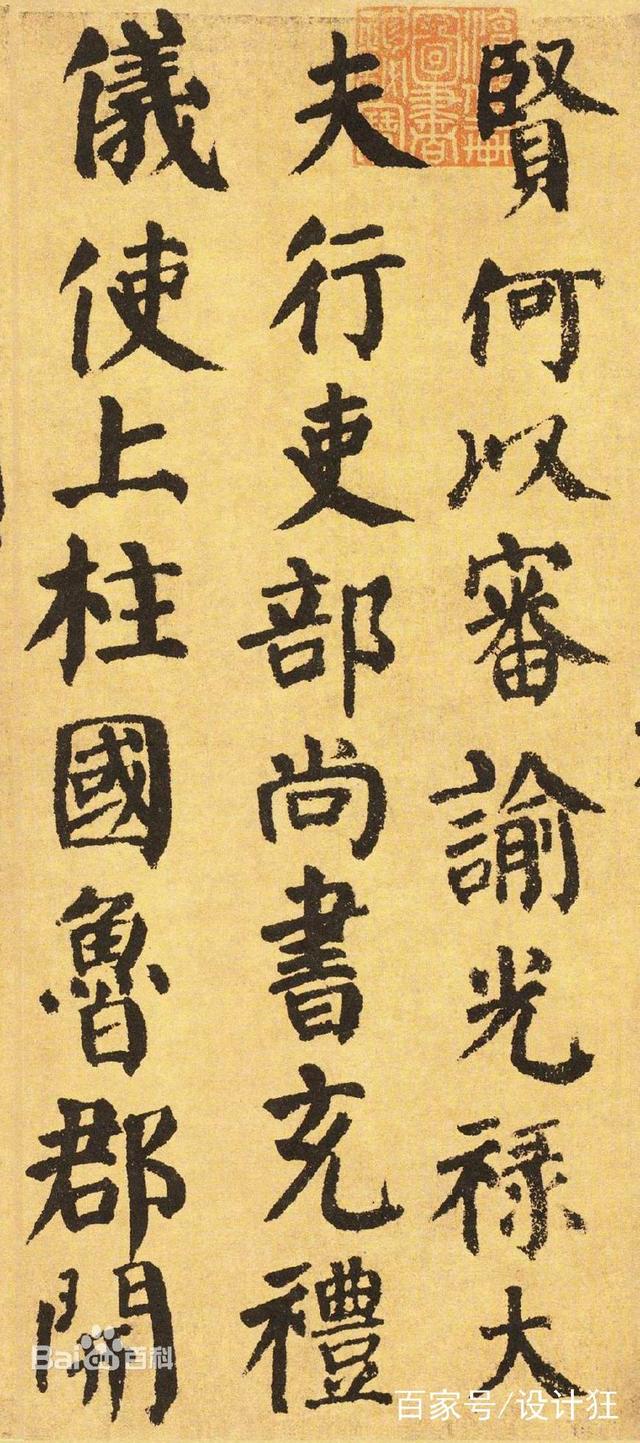 賢何以審諭光禄大
夫行吏部尚書充禮
儀使上柱國魯郡開
Bai百科
百家号/设计狂